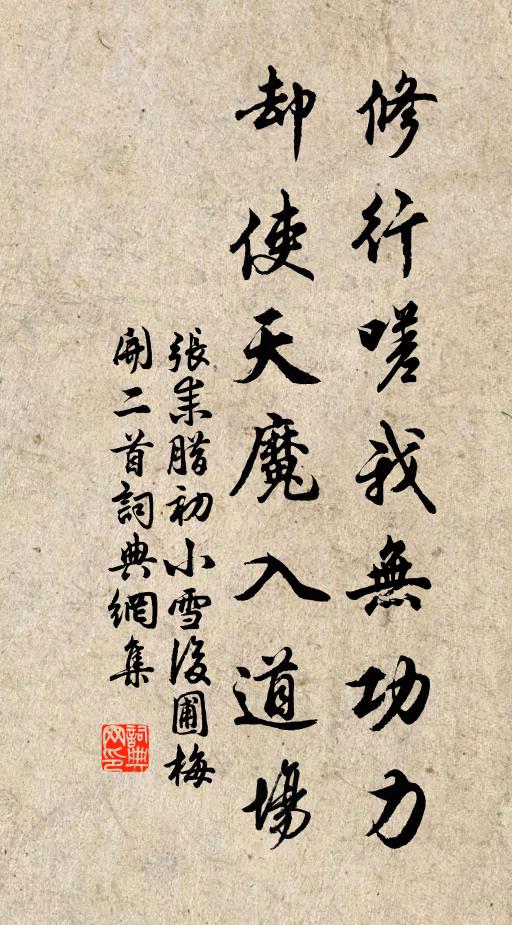 修行嗟我無功力
却使天魔入道場
張耒腊初小雪後圃梅
開二首詞典網集
詞典
网印